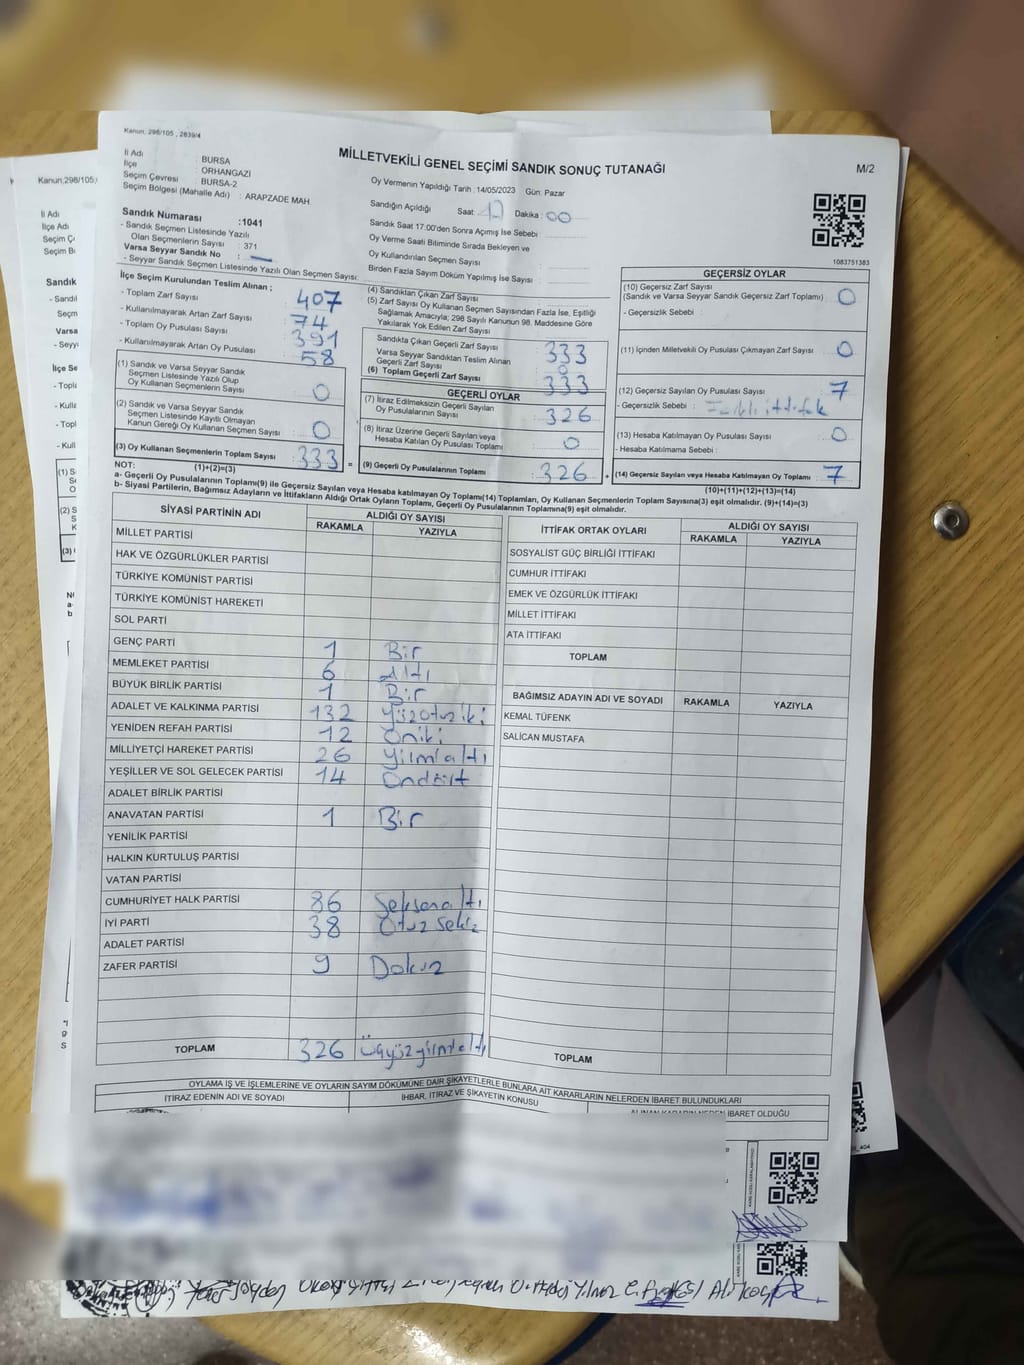 Kanun; 298/105 , 2839/4
MİLLETVEKİLİ GENEL SEÇİMİ SANDIK SONUÇ TUTANAĞI
M/2
İl Adı : BURSA
İlçe : ORHANGAZİ
Seçim Çevresi : BURSA-2
Seçim Bölgesi (Mahalle Adı) : ARAPZADE MAH.
Sandık Numarası :1041
- Sandık Seçmen Listesinde Yazılı
Olan Seçmenlerin Sayısı : 371
Varsa Seyyar Sandık No :
- Seyyar Sandık Seçmen Listesinde Yazılı Olan Seçmen Sayısı:
Oy Vermenin Yapıldığı Tarih : 14/05/2023 Gün: Pazar
Sandığın Açıldığı Saat : 17 Dakika : 00
Sandık Saat 17.00'den Sonra Açımış İse Sebebi :
Oy Verme Saati Bitiminde Sırada Bekleyen ve
Oy Kullandırılan Seçmen Sayısı :
Birden Fazla Sayım Döküm Yapılmış İse Sayısı :
1083751383
İlçe Seçim Kurulundan Teslim Alınan ;
- Toplam Zarf Sayısı : 407
- Kullanılmayarak Artan Zarf Sayısı : 74
- Toplam Oy Pusulası Sayısı : 391
- Kullanılmayarak Artan Oy Pusulası : 58
(1) Sandık ve Varsa Seyyar Sandık
Seçmen Listesinde Yazılı Olup
Oy Kullanan Seçmenlerin Sayısı : 0
(2) Sandık ve Varsa Seyyar Sandık
Seçmen Listesinde Kayıtlı Olmayan
Kanun Gereği Oy Kullanan Seçmen Sayısı : 0
(3) Oy Kullanan Seçmenlerin Toplam Sayısı : 333
(1)+(2)=(3)
(4) Sandıktan Çıkan Zarf Sayısı :
(5) Zarf Sayısı Oy Kullanan Seçmen Sayısından Fazla İse, Eşitliği
Sağlamak Amacıyla; 298 Sayılı Kanunun 98. Maddesine Göre
Yakılarak Yok Edilen Zarf Sayısı :
Sandıkta Çıkan Geçerli Zarf Sayısı : 333
Varsa Seyyar Sandıktan Teslim Alınan
Geçerli Zarf Sayısı : 0
(6) Toplam Geçerli Zarf Sayısı : 333
GEÇERLİ OYLAR
(7) İtiraz Edilmeksizin Geçerli Sayılan
Oy Pusulalarının Sayısı : 326
(8) İtiraz Üzerine Geçerli Sayılan veya
Hesaba Katılan Oy Pusulası Toplamı : 0
(9) Geçerli Oy Pusulalarının Toplamı : 326
GEÇERSİZ OYLAR
(10) Geçersiz Zarf Sayısı
(Sandık ve Varsa Seyyar Sandık Geçersiz Zarf Toplamı) : 0
- Geçersizlik Sebebi :
(11) İçinden Milletvekili Oy Pusulası Çıkmayan Zarf Sayısı : 0
(12) Geçersiz Sayılan Oy Pusulası Sayısı : 7
- Geçersizlik Sebebi : ittifak
(13) Hesaba Katılmayan Oy Pusulası Sayısı : 0
- Hesaba Katılmama Sebebi :
(14) Geçersiz Sayılan veya Hesaba Katılmayan Oy Toplamı : 7
(10)+(11)+(12)+(13)=(14)
NOT:
a- Geçerli Oy Pusulaları Toplamı(9) ile Geçersiz Sayılan veya Hesaba katılmayan Oy Toplamı(14) Toplamları, Oy Kullanan Seçmenlerin Toplam Sayısına(3) eşit olmalıdır. (9)+(14)=(3)
b- Siyasi Partilerin, Bağımsız Adayların ve İttifakların Aldığı Ortak Oyların Toplamı, Geçerli Oy Pusulalarının Toplamına(9) eşit olmalıdır.
SİYASİ PARTİNİN ADI ALDIĞI OY SAYISI
RAKAMLA YAZIYLA
MİLLET PARTİSİ
HAK VE ÖZGÜRLÜKLER PARTİSİ
TÜRKİYE KOMÜNİST PARTİSİ
TÜRKİYE KOMÜNİST HAREKETİ
SOL PARTİ
GENÇ PARTİ 1 Bir
MEMLEKET PARTİSİ 6 Altı
BÜYÜK BİRLİK PARTİSİ 1 Bir
ADALET VE KALKINMA PARTİSİ 132 Yüzotuziki
YENİDEN REFAH PARTİSİ 12 Oniki
MİLLİYETÇİ HAREKET PARTİSİ 26 Yirmialtı
YEŞİLLER VE SOL GELECEK PARTİSİ 14 Ondört
ADALET BİRLİK PARTİSİ
ANAVATAN PARTİSİ 1 Bir
YENİLİK PARTİSİ
HALKIN KURTULUŞ PARTİSİ
VATAN PARTİSİ
CUMHURİYET HALK PARTİSİ 86 Seksenaltı
İYİ PARTİ 38 Otuz Sekiz
ADALET PARTİSİ
ZAFER PARTİSİ 9 Dokuz
TOPLAM 326 Üçyüzyirmialtı
İTTİFAK ORTAK OYLARI ALDIĞI OY SAYISI
RAKAMLA YAZIYLA
SOSYALİST GÜÇ BİRLİĞİ İTTİFAKI
CUMHUR İTTİFAKI
EMEK VE ÖZGÜRLÜK İTTİFAKI
MİLLET İTTİFAKI
ATA İTTİFAKI
TOPLAM
BAĞIMSIZ ADAYIN ADI VE SOYADI RAKAMLA YAZIYLA
KEMAL TÜFENK
SALİCAN MUSTAFA
TOPLAM
OYLAMA İŞ VE İŞLEMLERİNE VE OYLARIN SAYIM DÖKÜMÜNE DAİR ŞİKAYETLERLE BUNLARA AİT KARARLARIN NELERDEN İBARET BULUNDUKLARI
İTİRAZ EDENİN ADI VE SOYADI
İHBAR, İTİRAZ VE ŞİKAYETİN KONUSU
ALINAN KARARIN NEDEN İBARET OLDUĞU